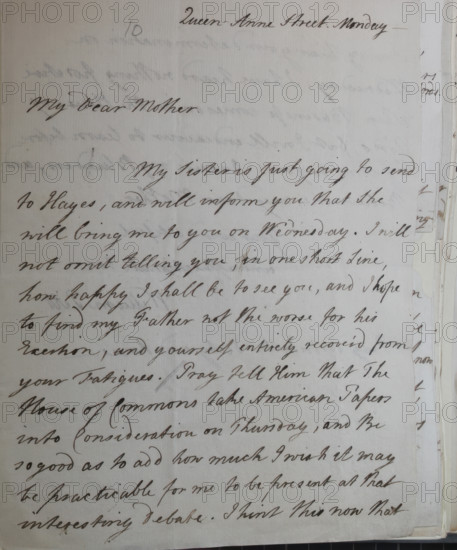 10
Queen Anne Street. Monday
My Dear Mother
My Sister is just going to send
to Hayes, and will inform you that She
will bring me to you on Wednesday. I will
not omit telling you, in one short Line,
how happy I shall be to see you, and I hope
to find my Father not the worse for his
Exertion, and yourself entirely recover'd from
your Fatigues. Pray tell Him that The
House of Commons take American Papers
into Consideration on Thursday, and Be
so good as to add how much I wish it may
be practicable for me to be present at that
interesting Debate. I hint this now that
PHOTO 12